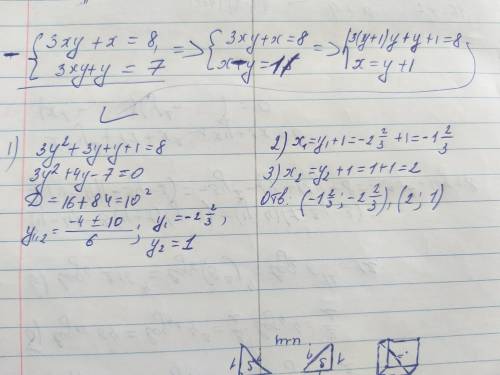 { 3xy + x = 8, => { 3xy + x = 8 => { 3(y+1)y + y + 1 = 8
{ 3xy + y = 7 { x - y = 1 { x = y + 1
1) 3y² + 3y + y + 1 = 8
3y² + 4y - 7 = 0
D = 16 + 84 = 10²
y₁,₂ = (-4 ± 10)/6 ; y₁ = -2 2/3,
y₂ = 1
2) x₁ = y₁ + 1 = -2 2/3 + 1 = -1 2/3
3) x₂ = y₂ + 1 = 1 + 1 = 2
Отв. (-1 2/3; -2 2/3), (2; 1)
или